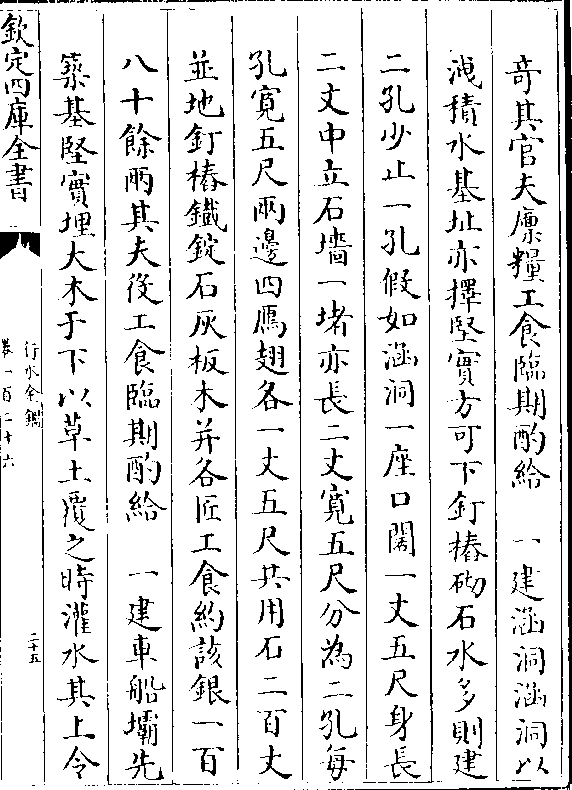 竒其官夫廪糧工食臨期酌給　一建涵洞涵洞以
洩積水基址亦擇堅實方可下釘樁砌石水多則建
二孔少止一孔假如涵洞一座口闊一丈五尺身長
二丈中立石墻一堵亦長二丈寛五尺分為二孔每
孔寛五尺兩邊四鴈翅各一丈五尺共用石二百丈
並地釘樁鐵錠石灰板木并各匠工食約該銀一百
八十餘兩其夫役工食臨期酌給　一建車船壩先
築基堅實埋大木于下以草土覆之時灌水其上令
欽定四庫全書
行水金鑑
卷一百二十六
二十五